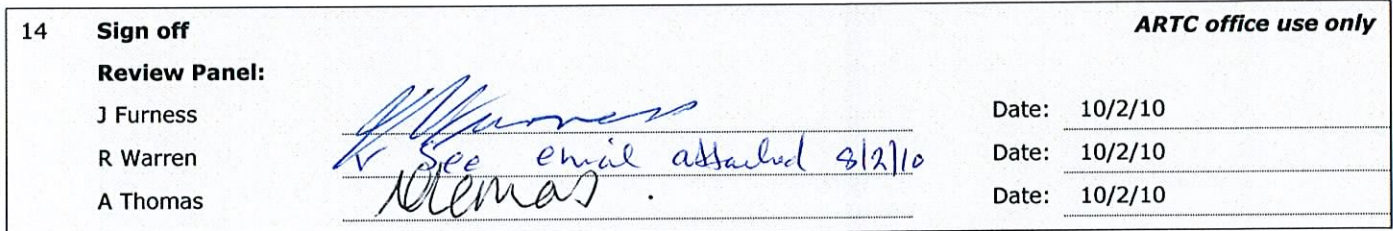 14 Sign off ARTC office use only
Review Panel:
J Furness Furness Date: 10/2/10
R Warren See email attached 8/2/10 Date: 10/2/10
A Thomas Thomas Date: 10/2/10